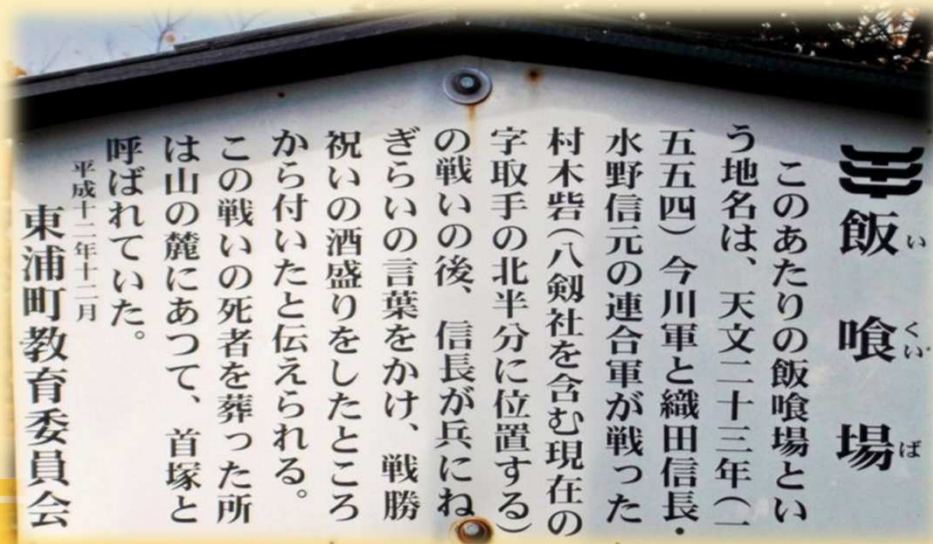 飯喰場
いくいば
このあたりの飯喰場とい
う地名は、天文二十三年(一
五五四)今川軍と織田信長・
水野信元の連合軍が戦った
村木砦(八剱社を含む現在の
字取手の北半分に位置する)
の戦いの後、信長が兵にね
ぎらいの言葉をかけ、戦勝
祝いの酒盛りをしたところ
から付いたと伝えられる。
この戦いの死者を葬った所
は山の麓にあつて、首塚と
呼ばれていた。
平成十二年十二月
東浦町教育委員会